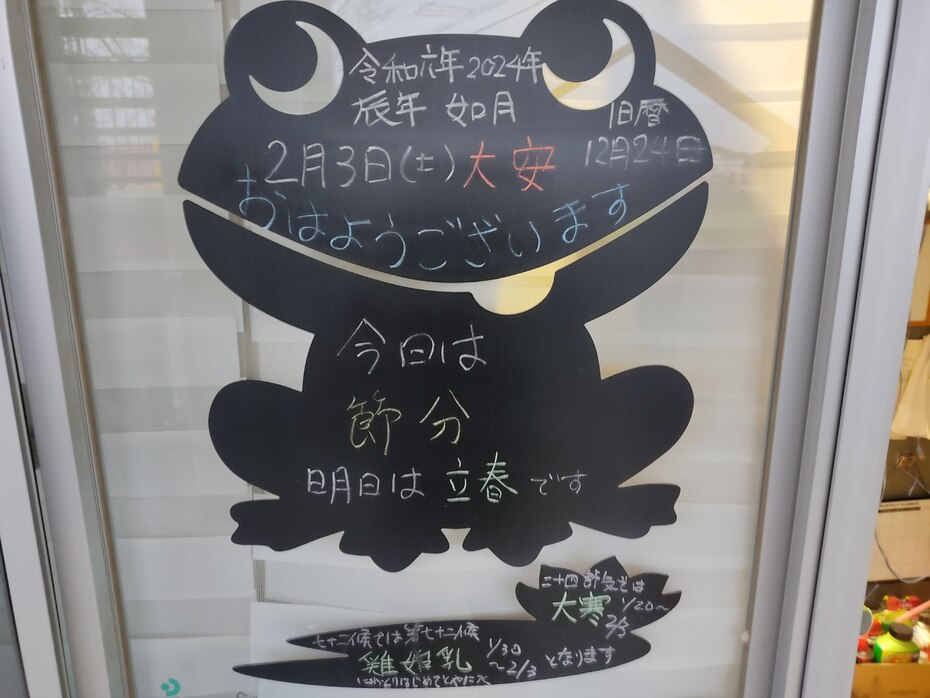 令和六年2024年
辰年 如月
旧暦
12月24日
2月3日(土)大安
おはようございます
今日は
節分
明日は立春です
二十四節気では
大寒 1/20〜2/3
七十二候では第七十二候
雞始乳 1/30〜2/3 となります
にわとりはじめてとやにつく